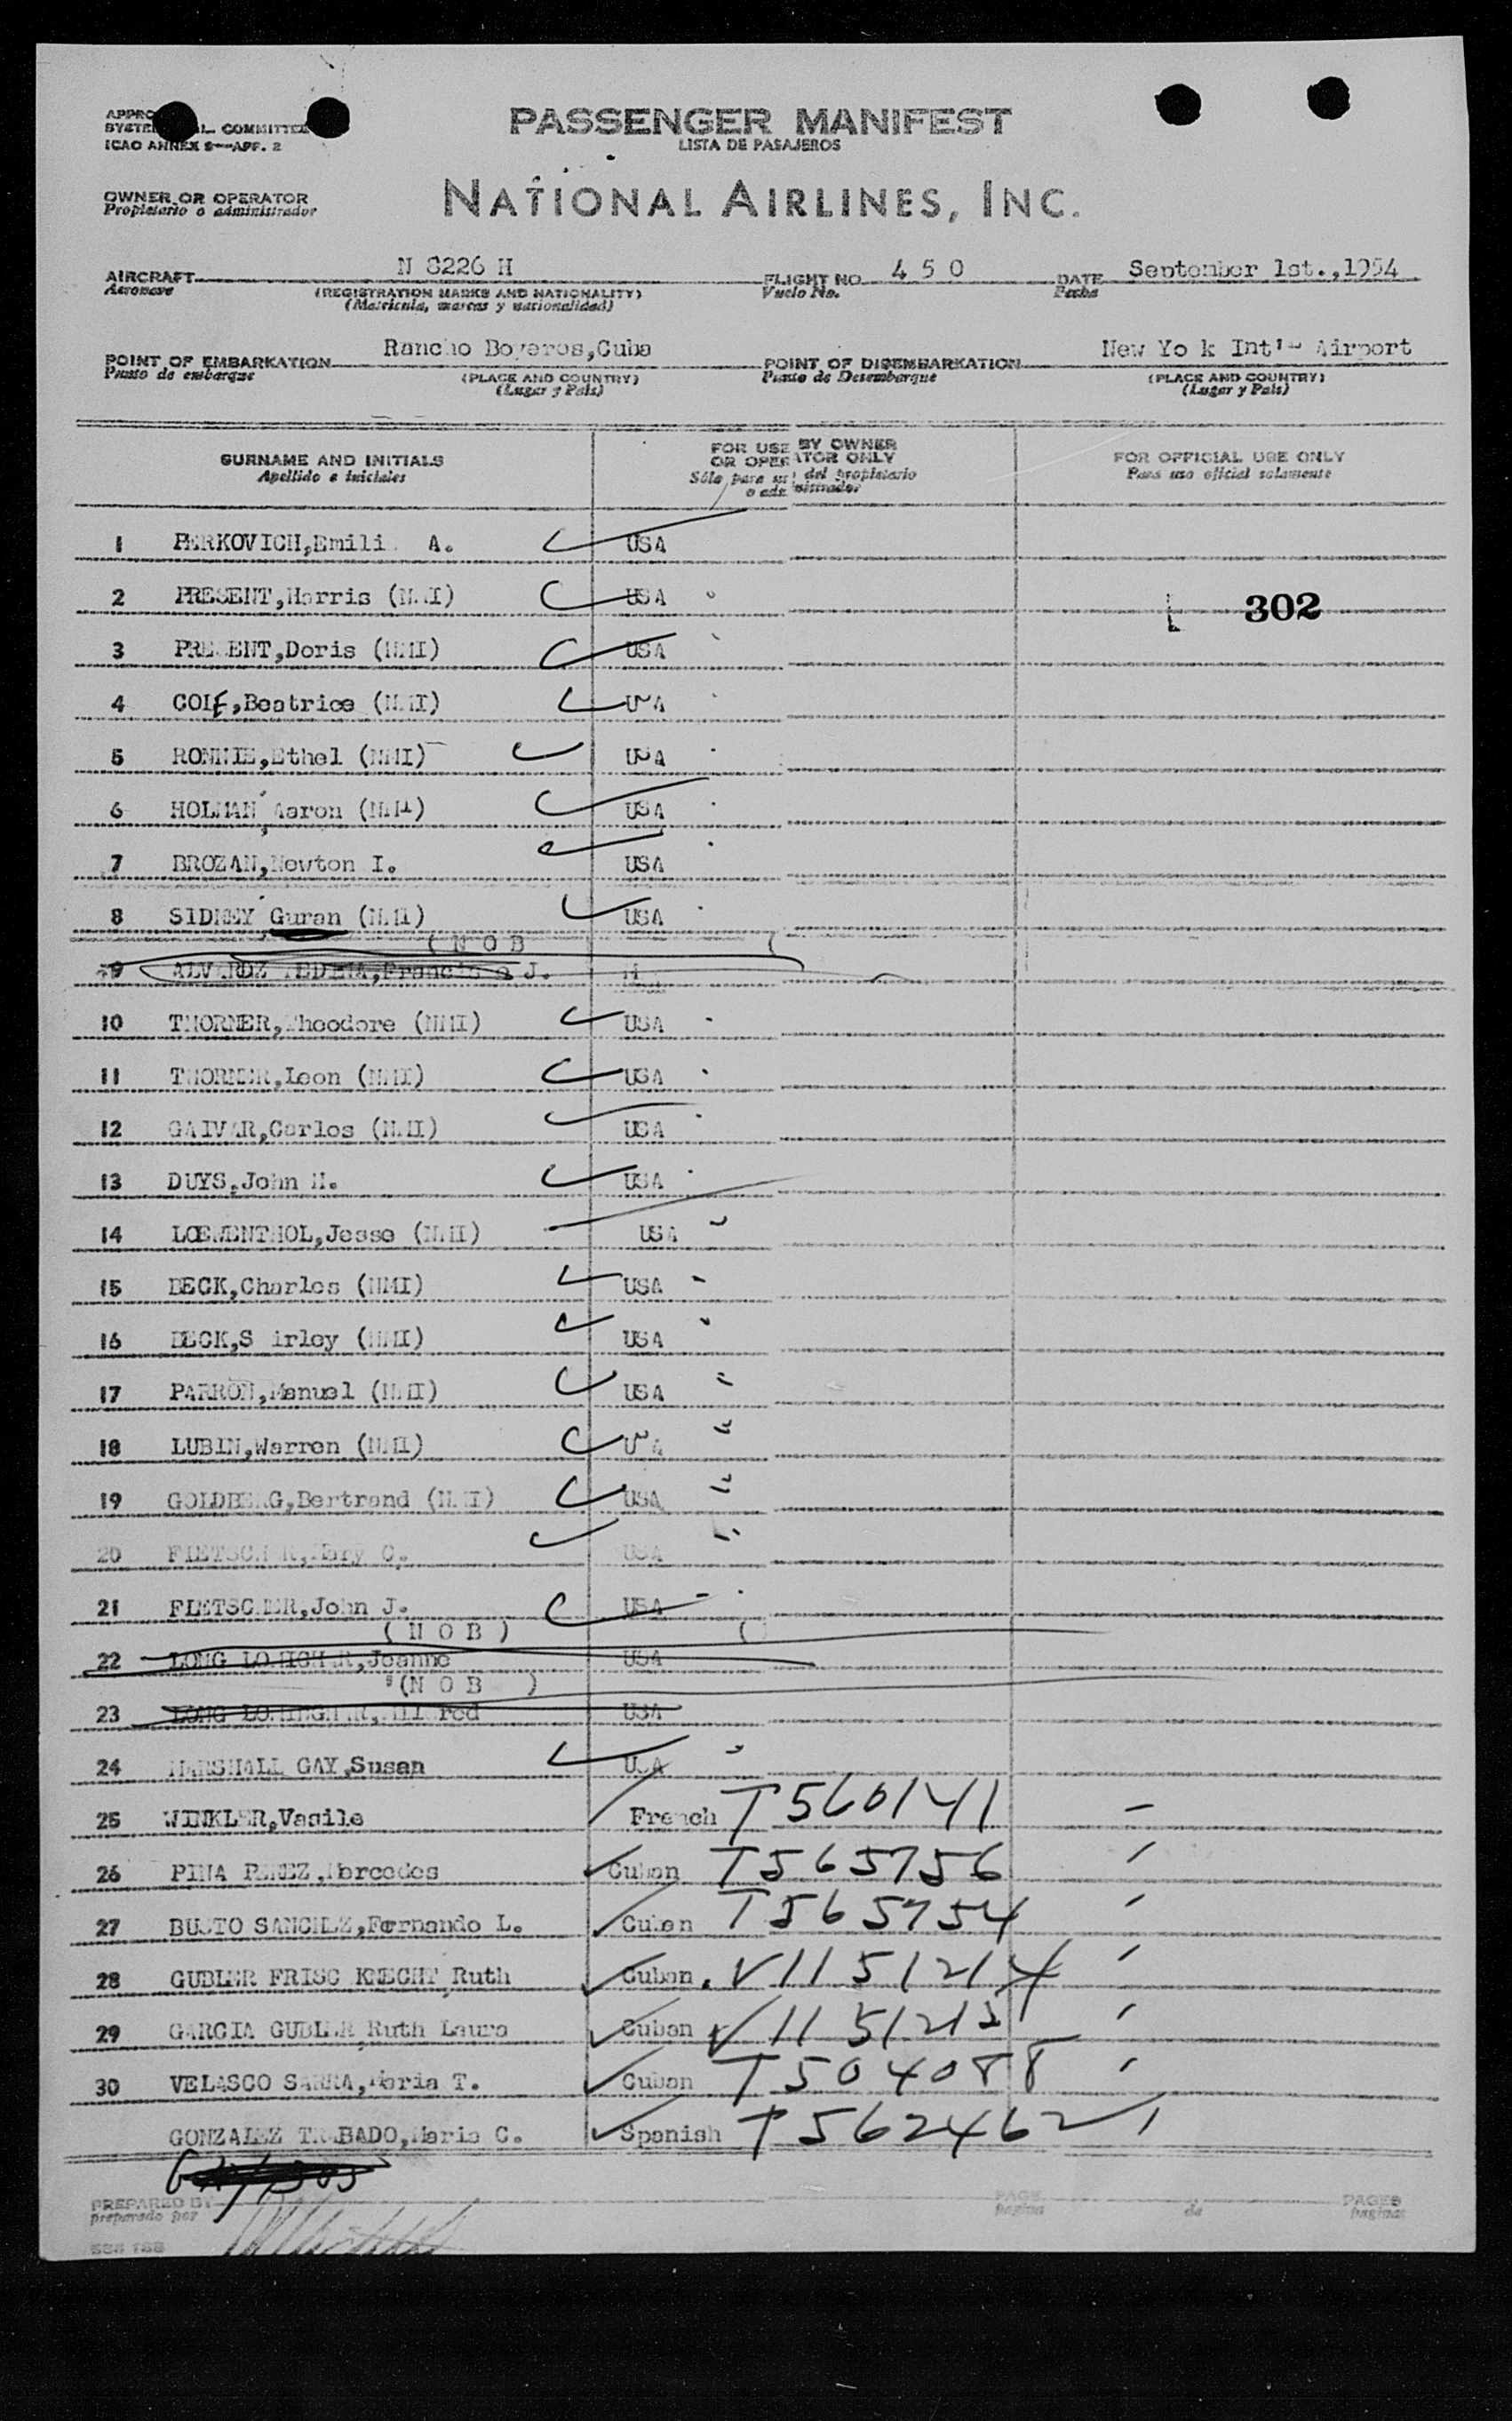 PASSENGER MANIFEST
LISTA DE PASAJEROS
COMMITTEE
ICAO ANNEX 9—APP. 2
OWNER OR OPERATOR
Propietario o administrador
NATIONAL AIRLINES, INC.
AIRCRAFT N 8226 H FLIGHT NO. 4 5 0 DATE September 1st.,1954
Aeronave (REGISTRATION MARKS AND NATIONALITY) Vuelo No. Fecha
(Matrícula, marcas y nacionalidad)
POINT OF EMBARKATION Rancho Boyeros,Cuba POINT OF DISEMBARKATION New Yo k Int'l Airport
Punto de embarque (PLACE AND COUNTRY) Punto de Desembarque (PLACE AND COUNTRY)
(Lugar y País) (Lugar y País)
SURNAME AND INITIALS FOR USE BY OWNER OR OPERATOR ONLY FOR OFFICIAL USE ONLY
Apellido e iniciales Sólo para uso del propietario o administrador Para uso oficial solamente
1 PERKOVICH,Emili A. USA
2 PRESENT,Harris (NMI) USA 302
3 PRESENT,Doris (NMI) USA
4 COLE,Beatrice (NMI) USA
5 RONNIE,Ethel (NMI) USA
6 HOLMAN, Aaron (NMI) USA
7 BROZAN,Newton I. USA
8 SIDNEY, Guran (NMI) USA
( N O B
9 J.
10 THORNER,Theodore (NMI) USA
11 THORNER,Leon (NMI) USA
12 GAIVAR,Carlos (NMI) USA
13 DUYS,John H. USA
14 LOEWENTHOL,Jesse (NMI) USA
15 BECK,Charles (NMI) USA
16 BECK,S irley (NMI) USA
17 PARRON,Manuel (NMI) USA
18 LUBIN,Warren (NMI) USA
19 GOLDBERG,Bertrand (NMI) USA
20 FLETSCHER,Mary C. USA
21 FLETSCHER,John J. USA
( N O B )
22 LONG Jeanne USA
(N O B )
23 LONG USA
24 MARSHALL GAY,Susan USA
25 WINKLER,Vasile French T560141
26 PINA PEREZ,Mercedes Cuban T565756
27 BUSTO SANCHEZ,Fernando L. Cuban T565754
28 GUBLER FRISC KNECHT,Ruth Cuban V1151214
29 GARCIA GUBLER,Ruth Laura Cuban V1151215
30 VELASCO SARRA,Maria T. Cuban T504088
GONZALEZ TRABADO,Maria C. Spanish T562462
PREPARED BY PAGE PAGES
preparado por página de páginas